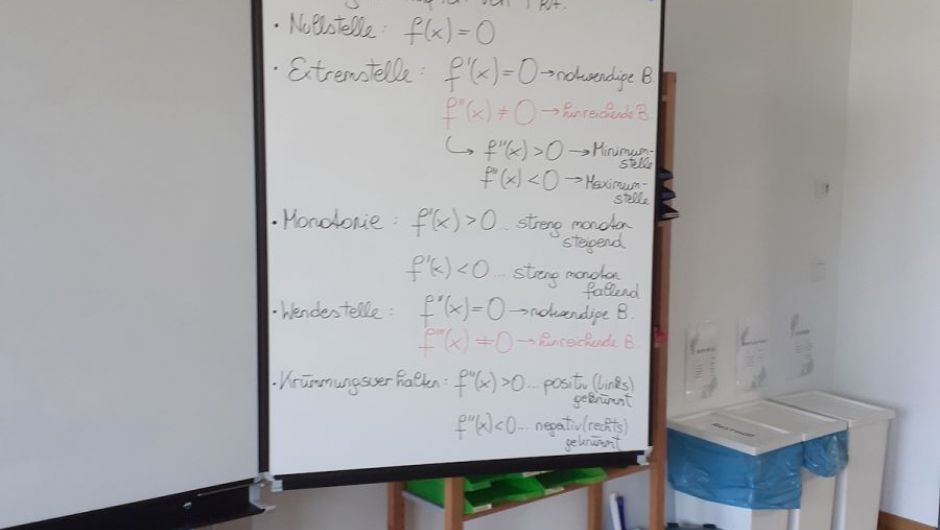 von
• Nullstelle: f(x) = 0
• Extremstelle: f'(x) = 0 → notwendige B.
f''(x) ≠ 0 → hinreichende B.
↳ f''(x) > 0 → Minimum-
stelle
f''(x) < 0 → Maximum-
stelle
• Monotonie: f'(x) > 0 ... streng monoton
steigend
f'(x) < 0 ... streng monoton
fallend
• Wendestelle: f''(x) = 0 → notwendige B.
f'''(x) ≠ 0 → hinreichende B.
• Krümmungsverhalten: f''(x) > 0 ... positiv (links)
gekrümmt
f''(x) < 0 ... negativ (rechts)
gekrümmt